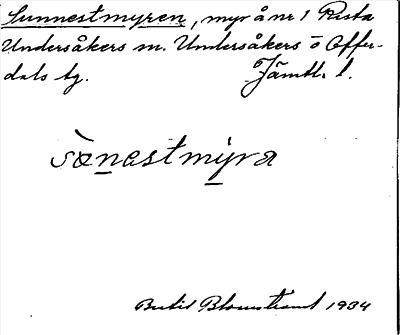 Sunnestmyren, myr å nr 1 Rista
Undersåkers sn. Undersåkers o Offer-
dals tg. Jämtl. l.
sènestmỳra
Bertil Blomstrand 1934